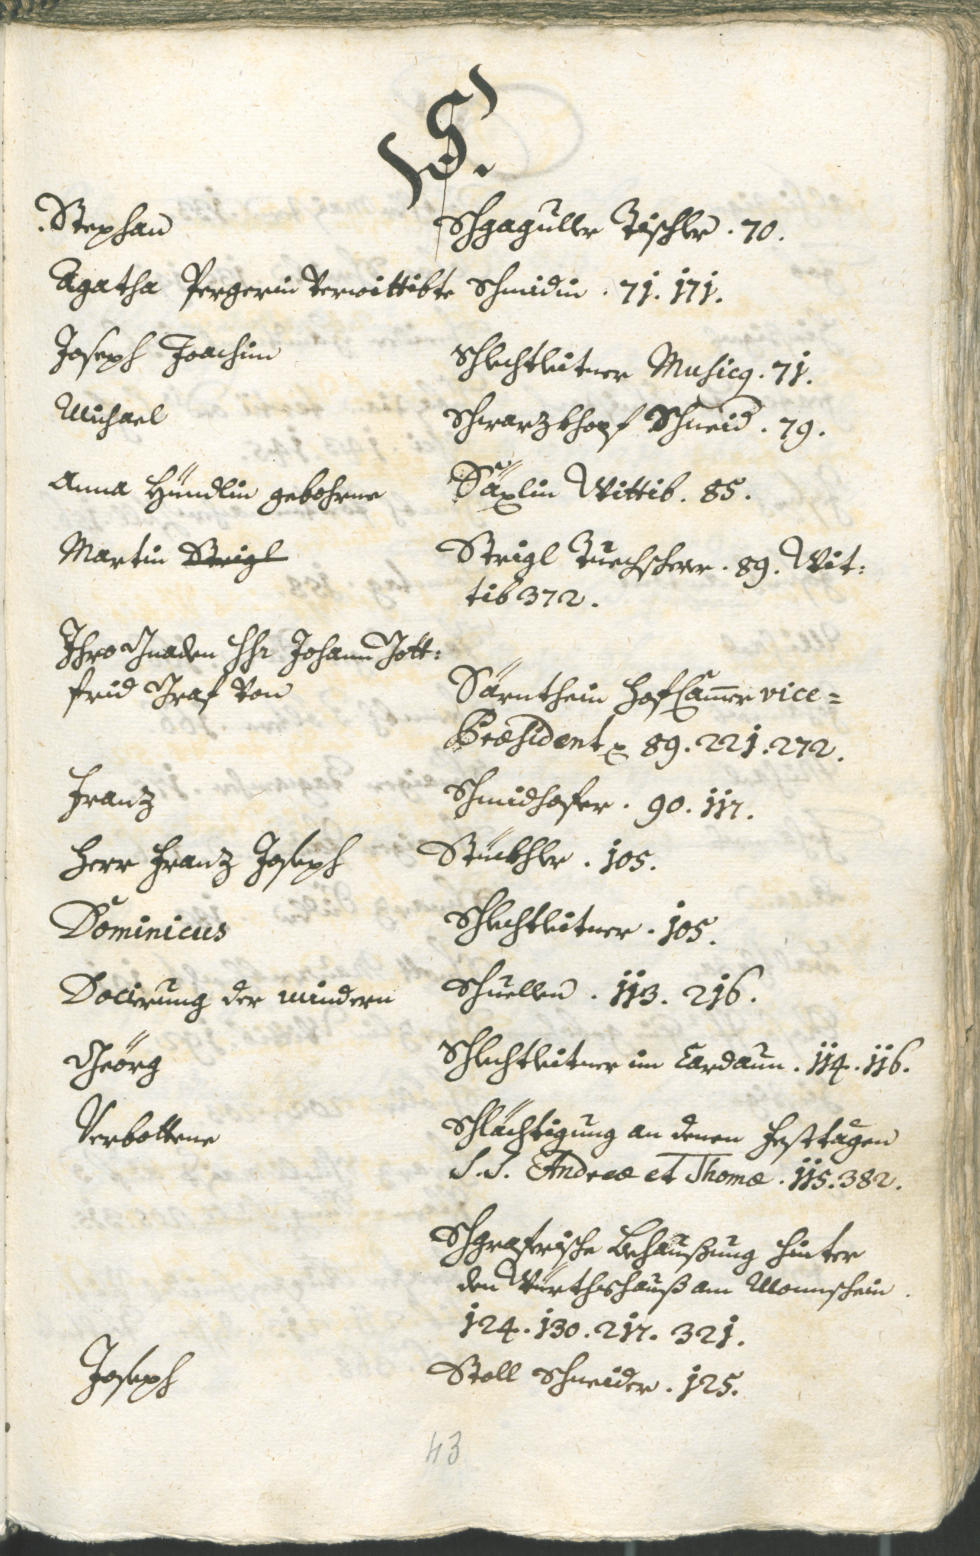 S.
Stephan Schgaguller Tischler . 70.
Agatha Pergerin verwittibte Schmidin . 71. 171.
Joseph Joachim Schlechtleitner Musicq. 71.
Michael Schwarzkhopf Schneid . 79.
Anna Hündlin gebohrne Säxlin Wittib. 85.
Martin Streigl Streigl Tuechscherer . 89. Wit:
tib 372.
Ihro Gnaden Hr Johann Gott:
frid Graf von Särnthein Hof Cammer vice=
Præsident 89. 221. 272.
Franz Schmidhofer . 90. 117.
Herr Franz Joseph Stückhler . 105.
Dominicus Schlechtleitner . 105.
Docierung der mindern Schuellen . 113. 216.
Geörg Schlechtleitner im Cardaun . 114. 116.
Verbottene Schlächtigung an denen Festtägen
S.S. Andreæ et Thomæ . 115. 382.
Behaußung hinter
den Würthshauß am Monnschein .
124. 130. 217. 321.
Joseph Stoll Schneider . 125.
43